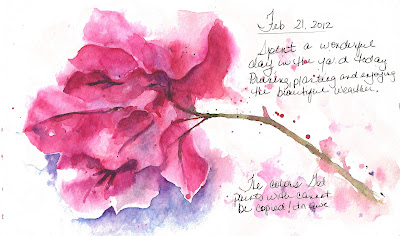 Feb 21, 2012
Spent a wonderful
day in the yard today
Pruning, planting and enjoying
the beautiful weather.
The colors God
paints with cannot
be copied! In awe